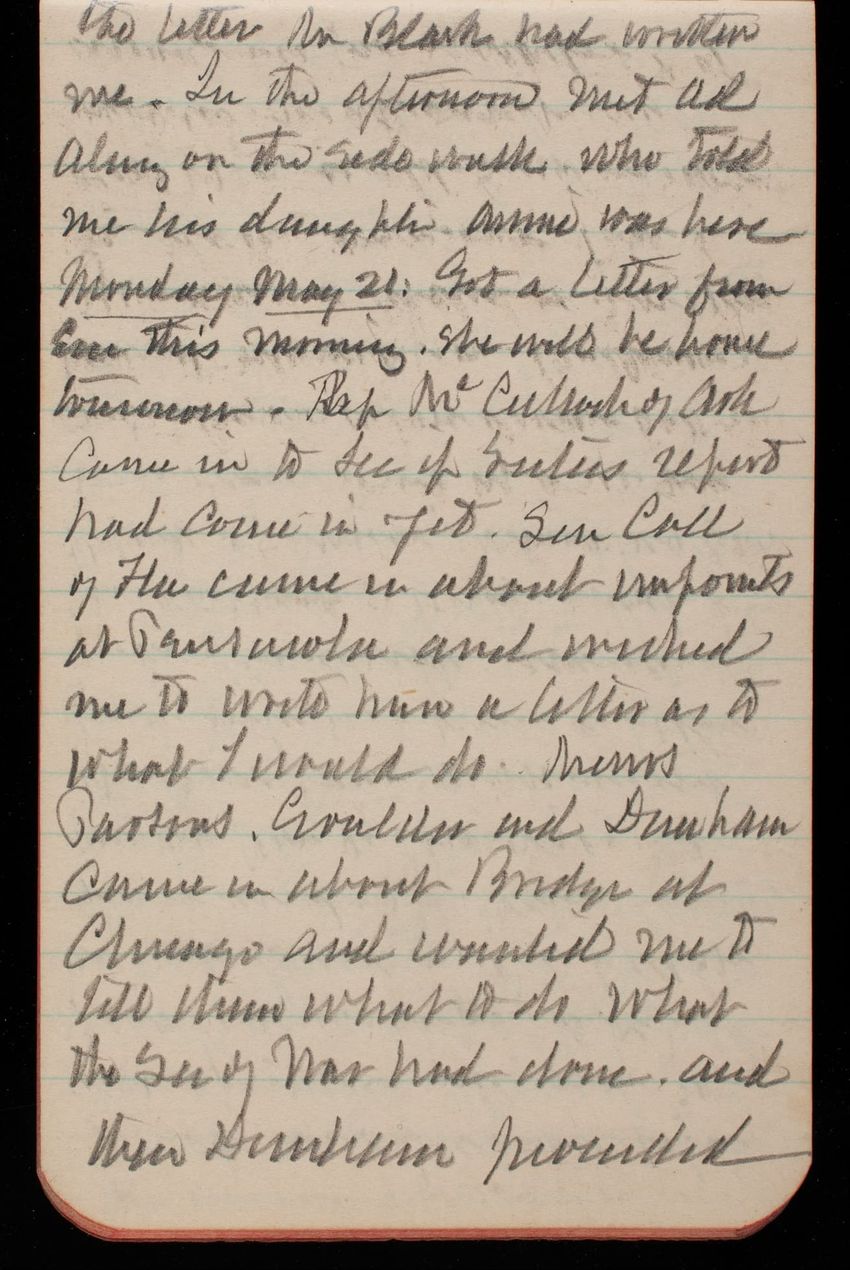 the letter Mr Black had written
me. In the afternoon met Ad
Alney on the side walk who told
me his daughter Annie was here
Monday May 21: Got a letter from
Em this morning. She will be home
tomorrow. Rep McCulloch of Ark
came in to see if report
had come in yet. Sen Call
of Fla came in about
at Pensacola and wished
me to write him a letter as to
what I would do. Messrs
Parsons, Goulder and Dunham
came in about Bridge at
Chicago and wanted me to
tell them what to do what
the Sec of War had done. and
then Dunham proceeded